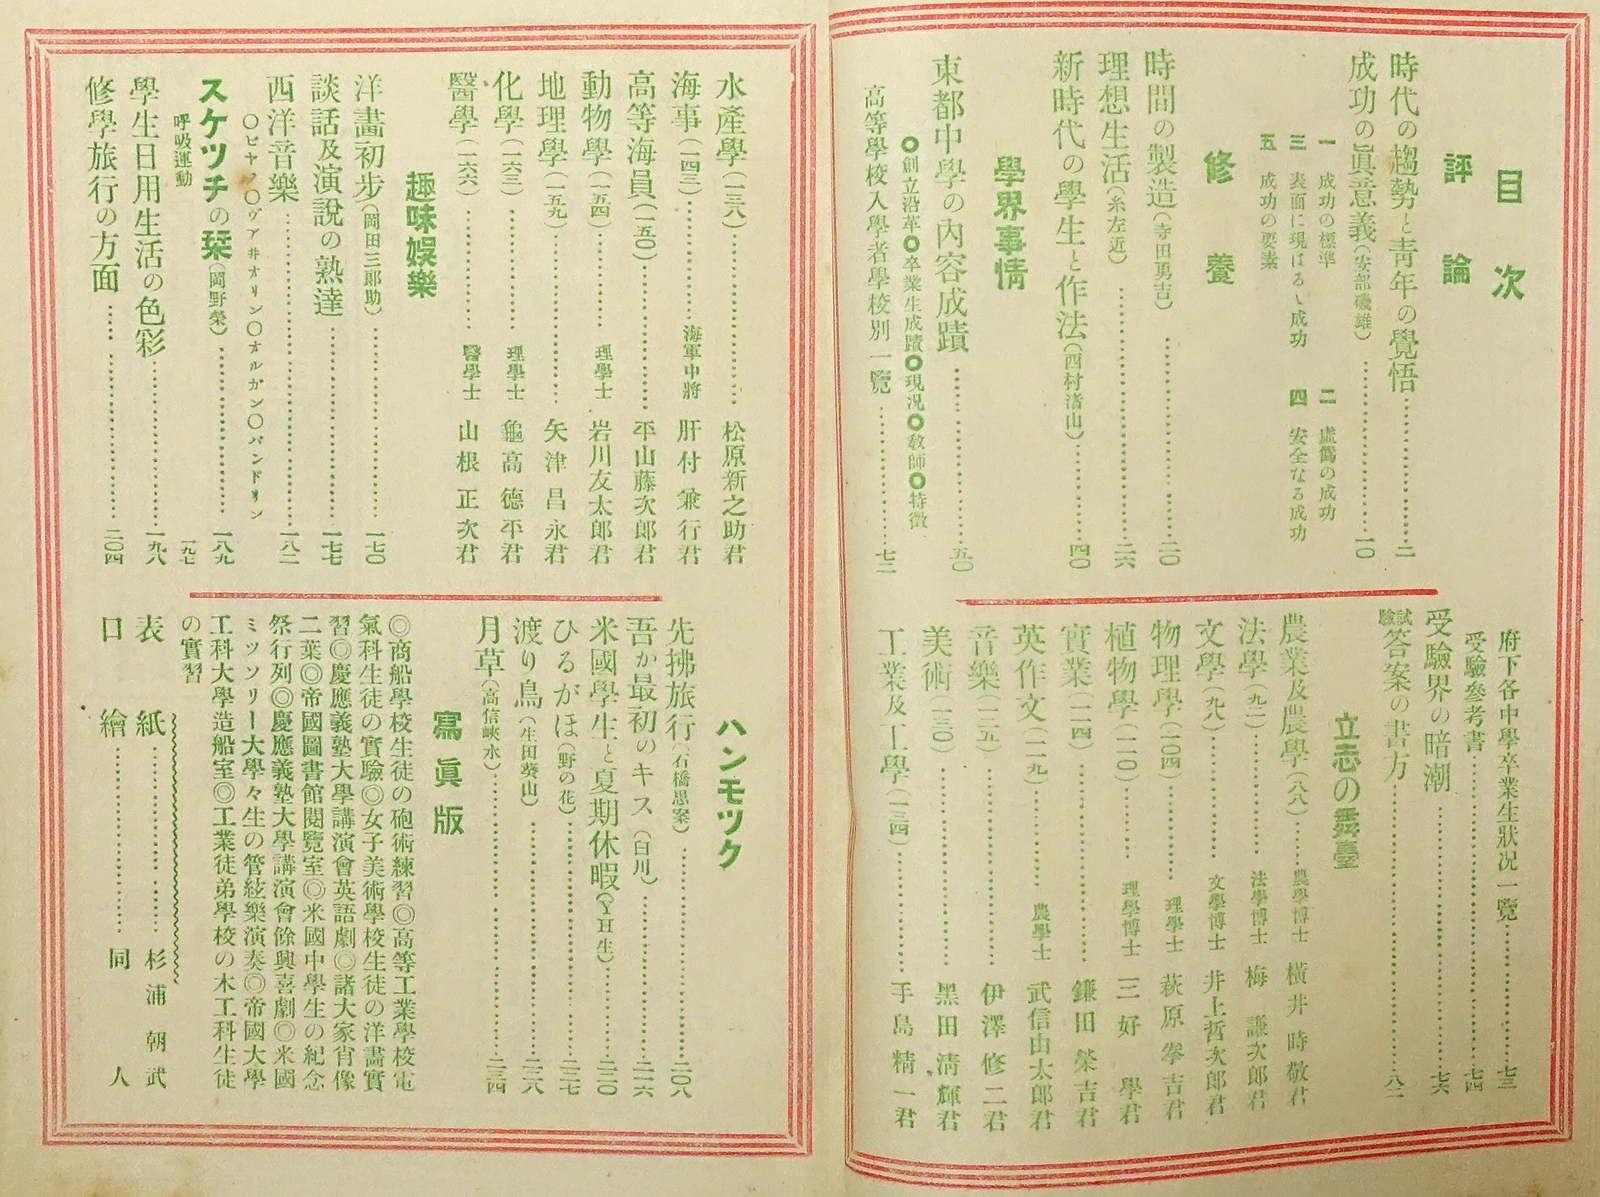 目次
評論
時代の趨勢と青年の覺悟……二
成功の眞意義(安部磯雄)……一〇
一 成功の標準 二 虛僞の成功
三 表面に現はるゝ成功 四 安全なる成功
五 成功の要素
修養
時間の製造(寺田勇吉)……二〇
理想生活(糸左近)……二六
新時代の學生と作法(西村渚山)……四〇
學界事情
東都中學の內容成蹟……五〇
○創立沿革○卒業生成蹟○現況○敎師○特徵
高等學校入學者學校別一覽……七二
府下各中學卒業生狀況一覽……七三
受驗參考書……七四
受驗界の暗潮……七六
試驗答案の書方……八二
立志の舞臺
農業及農學(八八)……農學博士 橫井時敬君
法學(九二)……法學博士 梅謙次郎君
文學(九八)……文學博士 井上哲次郎君
物理學(一〇四)……理學士 萩原拳吉君
植物學(一一〇)……理學博士 三好學君
實業(一一四)……鎌田榮吉君
英作文(一一九)……農學士 武信由太郎君
音樂(一二五)……伊澤修二君
美術(一三〇)……黑田淸輝君
工業及工學(一三四)……手島精一君
水產學(一三八)……松原新之助君
海事(一四三)……海軍中將 肝付兼行君
高等海員(一五〇)……平山藤次郎君
動物學(一五四)……理學士 岩川友太郎君
地理學(一五九)……矢津昌永君
化學(一六三)……理學士 龜高德平君
醫學(一六六)……醫學士 山根正次君
趣味娛樂
洋畵初步(岡田三郎助)……一七〇
談話及演說の熟達……一七七
西洋音樂……一八二
○ピヤノ○ヴアヰオリン○オルガン○バンドリン
スケツチの栞(岡野榮)……一八九
呼吸運動……一九七
學生日用生活の色彩……一九八
修學旅行の方面……二〇四
ハンモツク
先拂旅行(石橋思案)……二〇八
吾が最初のキス(白川)……二一六
米國學生と夏期休暇(YH生)……二二〇
ひるがほ(野の花)……二二七
渡り鳥(生田葵山)……二二八
月草(高信峽水)……二三四
寫眞版
◎商船學校生徒の砲術練習◎高等工業學校電
氣科生徒の實驗◎女子美術學校生徒の洋畵實
習◎慶應義塾大學講演會英語劇◎諸大家肖像
二葉◎帝國圖書館閱覽室◎米國中學生の紀念
祭行列◎慶應義塾大學講演會餘興喜劇◎米國
ミツソリー大學々生の管絃樂演奏◎帝國大學
工科大學造船室◎工業徒弟學校の木工科生徒
の實習
表紙……杉浦朝武
口繪……同人